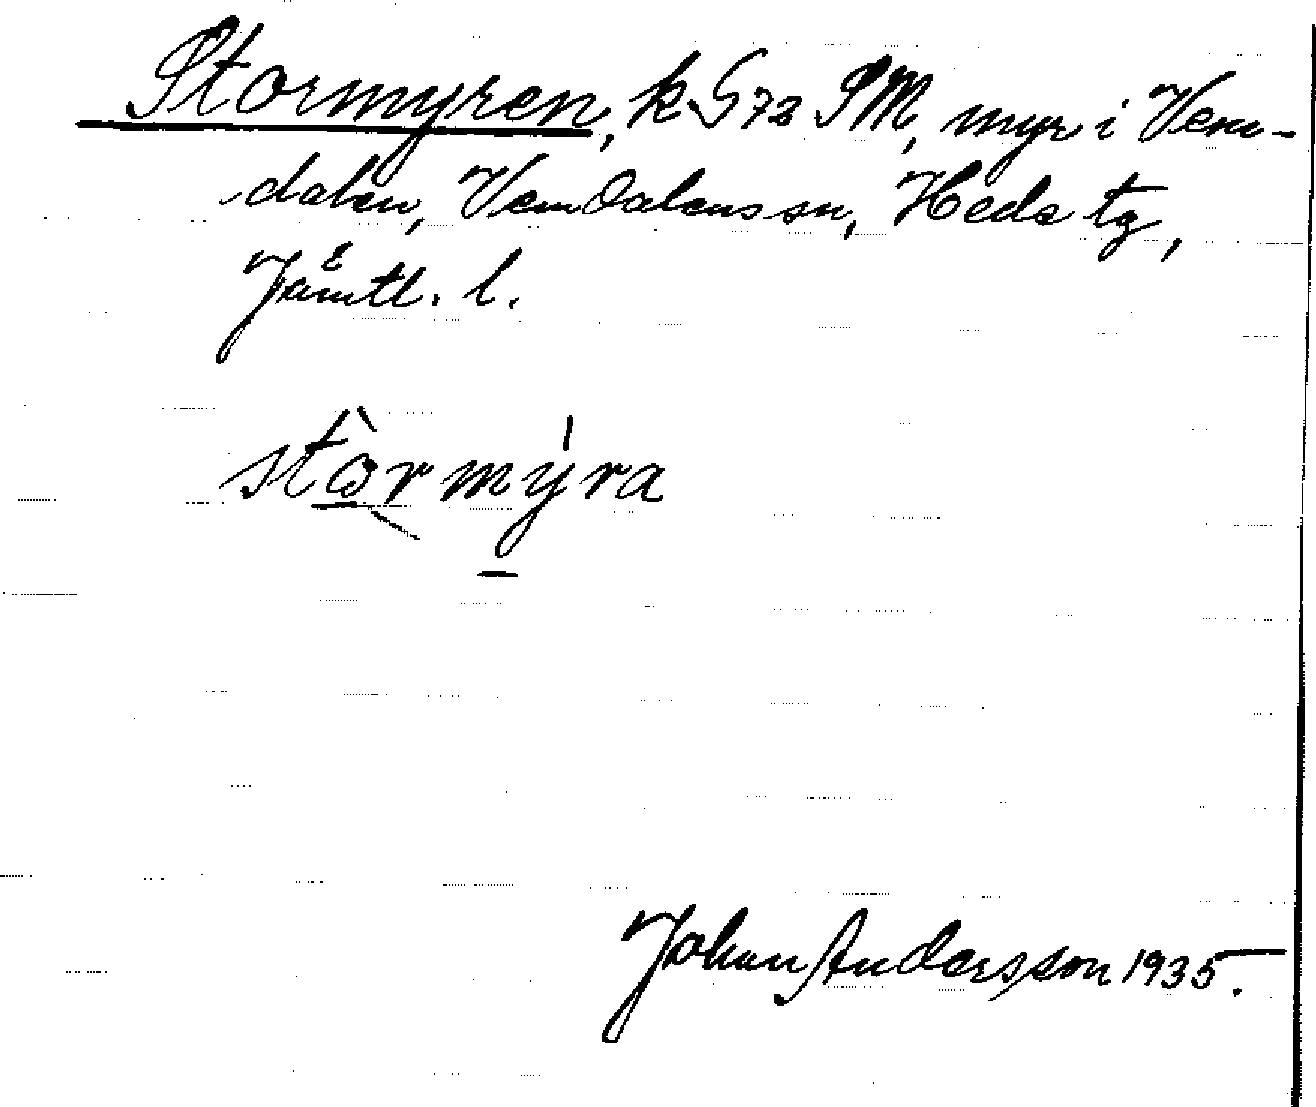 Stormyren, k. G 73 SM, myr i Vem-
dalen, Vemdalens sn, Heds tg,
Jämtl. l.
stòrmýra
Johan Andersson 1935.